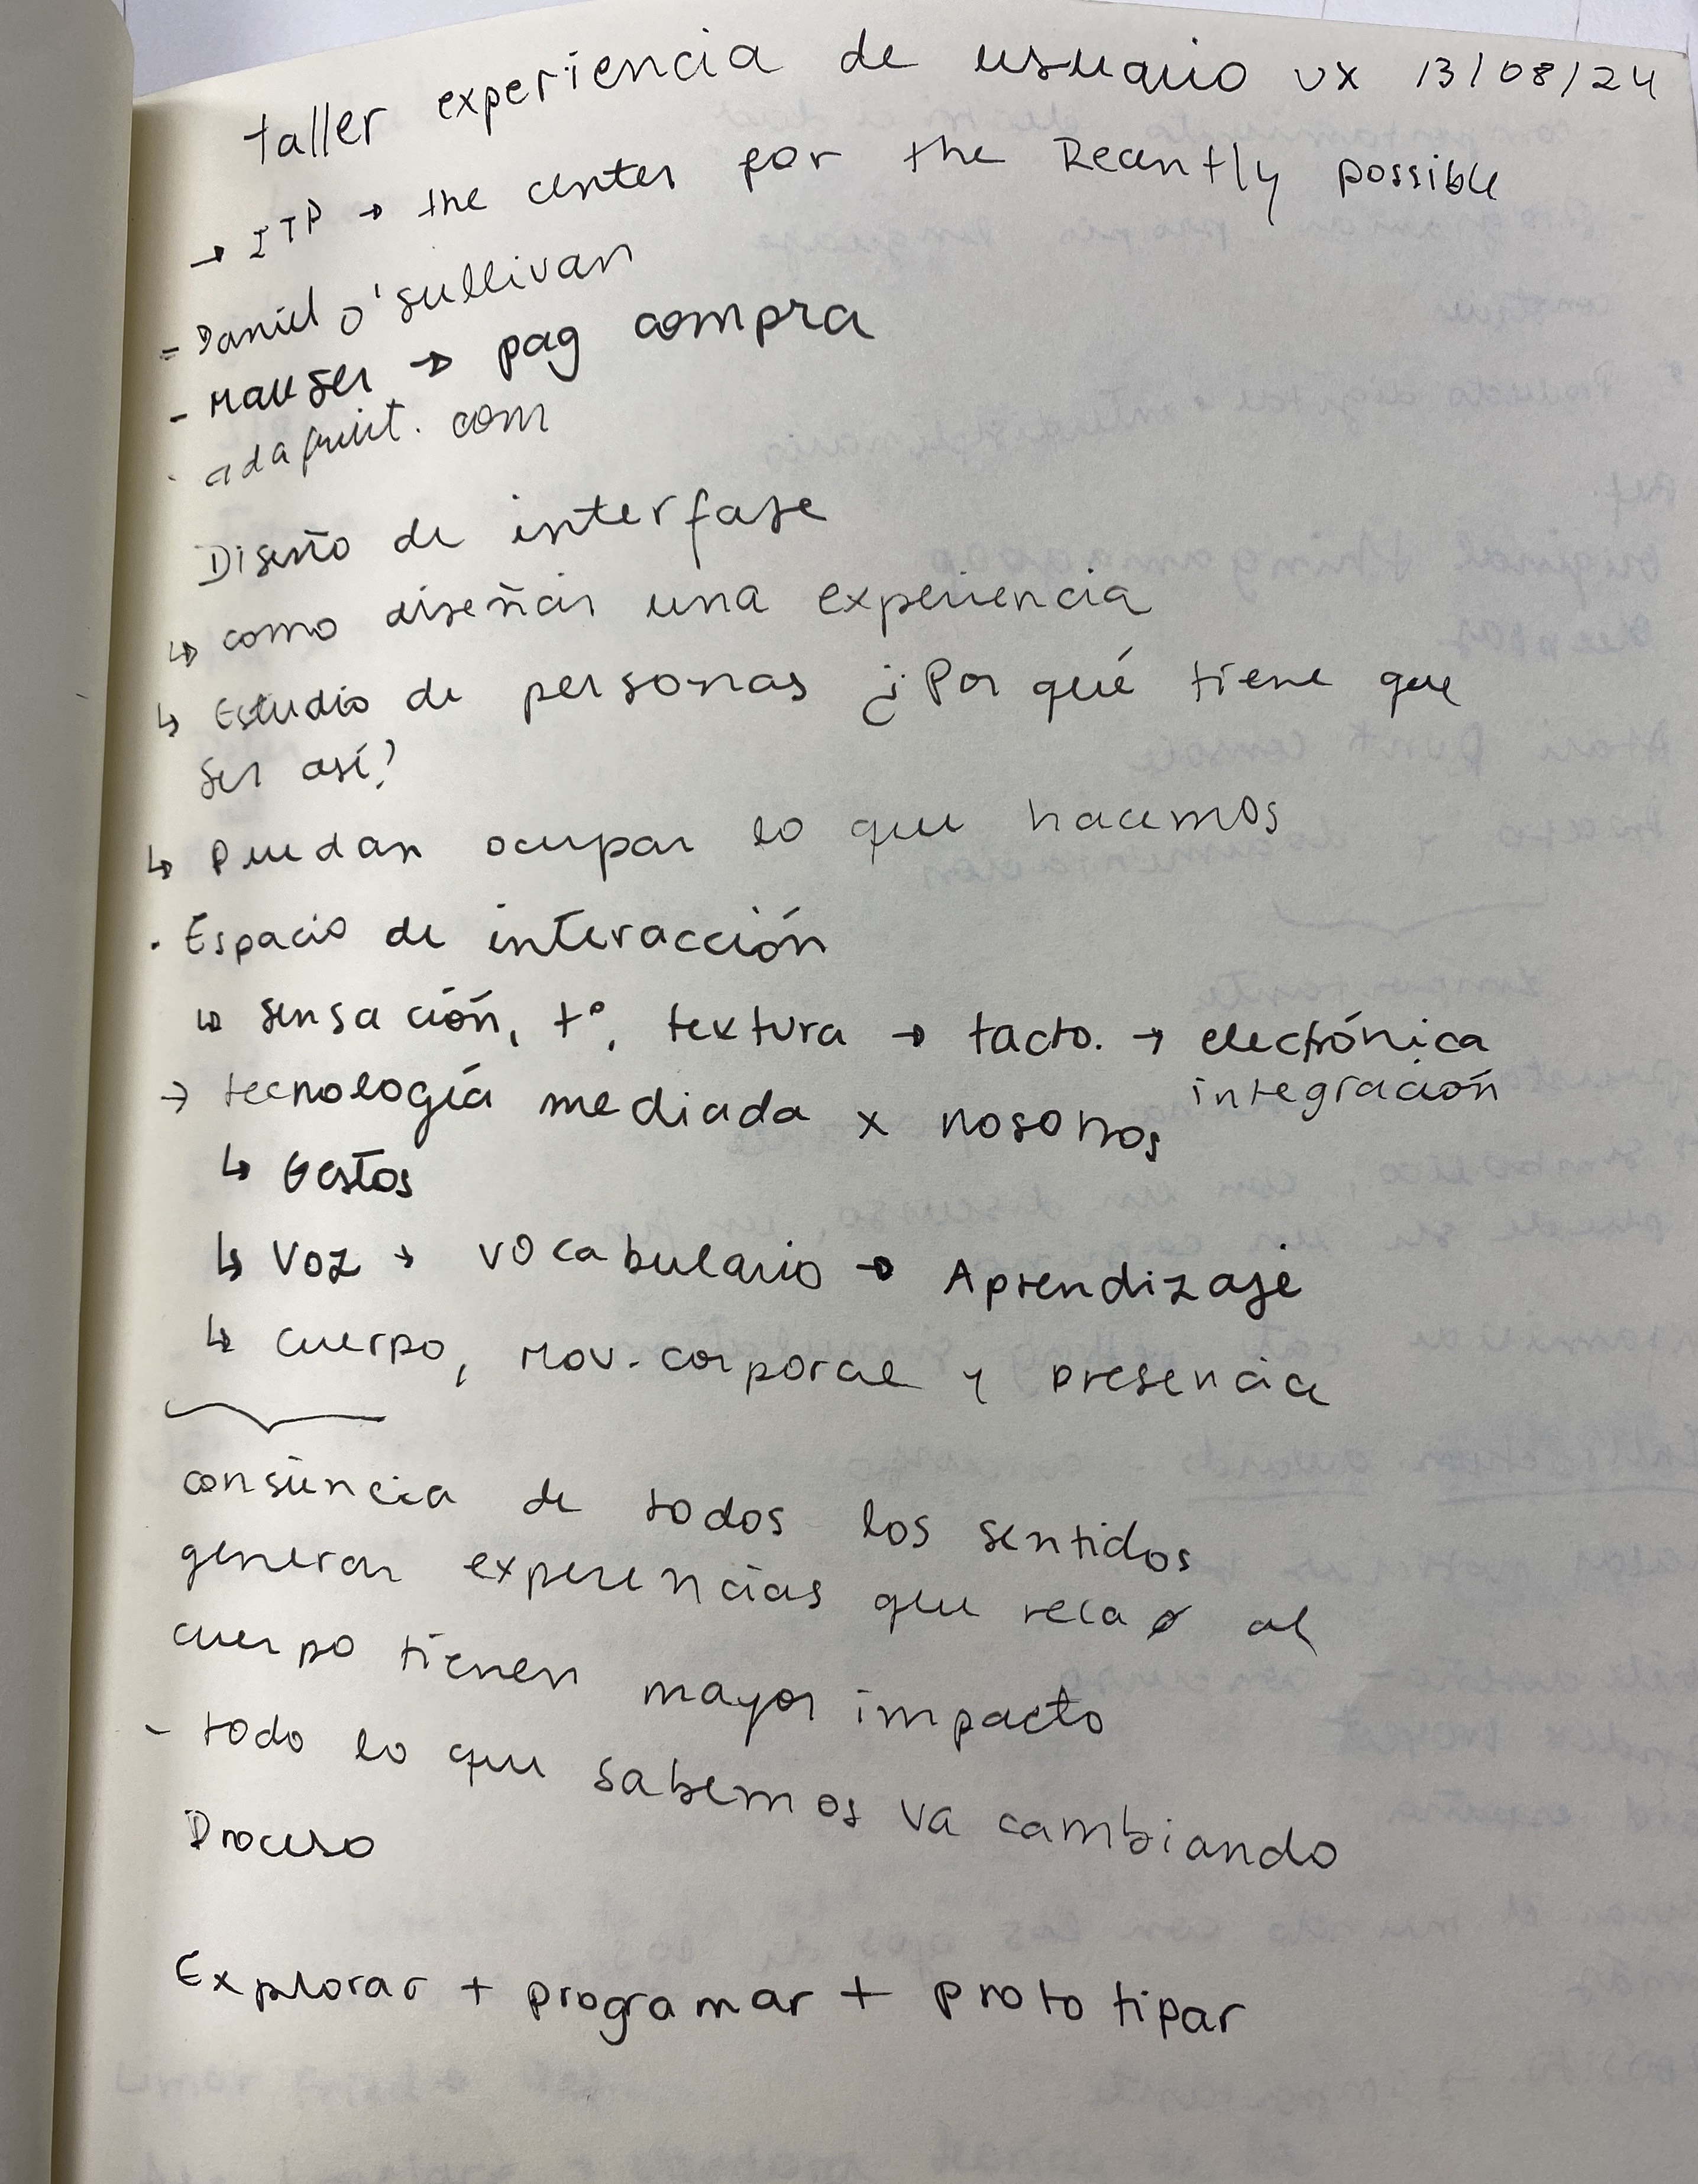 taller experiencia de usuario UX 13/08/24
→ ITP → the center for the Recently possible
- Daniel O'Sullivan
- Mauser → pag compra
· adafruit.com
Diseño de interfase
↳ como diseñar una experiencia
↳ Estudio de personas ¿Por qué tiene que
ser así?
↳ Puedan ocupar lo que hacemos
· Espacio de interacción
↳ sensación, t°, textura → tacto. → electrónica
integración
→ tecnología mediada x nosotros
↳ Gestos
↳ Voz → vocabulario → Aprendizaje
↳ cuerpo, mov. corporal y presencia
consiencia de todos los sentidos
generar experencias que rela al
cuerpo tienen mayor impacto
- todo lo que sabemos va cambiando
Proceso
Explorar + programar + prototipar